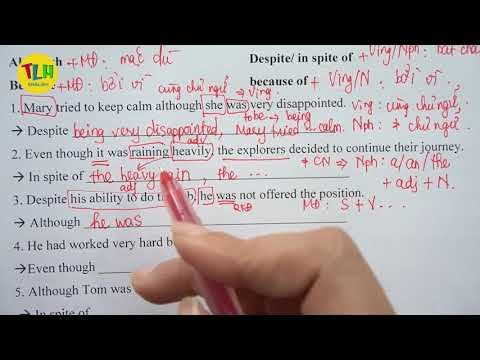 TLH
Although + MĐ: mặc dù
Despite/ in spite of + Ving/Nph: bất chấp
+ MĐ: bởi vì
because of + Ving/N: bởi vì
cùng chủ ngữ → Ving.
1. Mary tried to keep calm although she was very disappointed. Ving: cùng chủ ngữ
tobe → being
→ Despite being very disappointed, Mary tried a calm. Nph: ≠ chủ ngữ.
adv
2. Even though it was raining heavily, the explorers decided to continue their journey.
→ In spite of the heavy rain, the ... ≠ CN → Nph: a/an/the + adj + N.
adj
3. Despite his ability to do the job, he was not offered the position.
→ Although he was MĐ: S + V...
4. He had worked very hard
→Even though
5. Although Tom was
→ In spite of